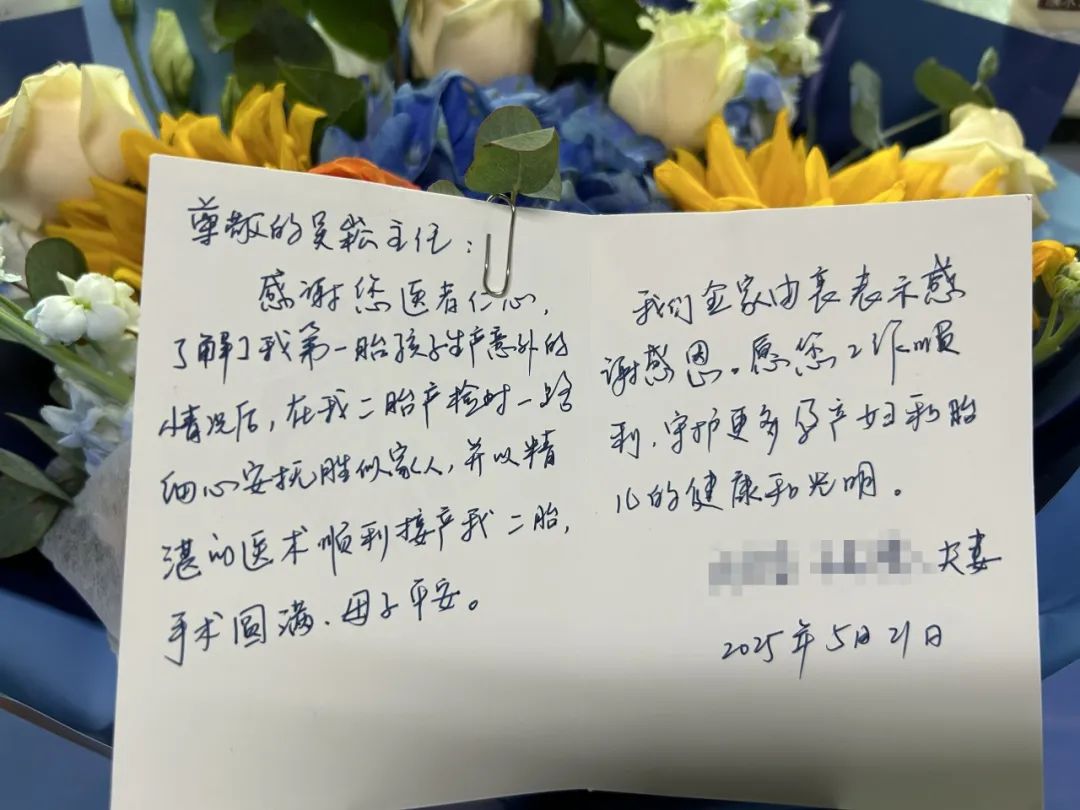 尊敬的吴崧主任：
感谢您医者仁心，
了解了我第一胎孩子生产意外的
情况后，在我二胎产检时一路
细心安抚胜似家人，并以精
湛的医术顺利接产我二胎，
手术圆满、母子平安。
我们全家由衷表示感
谢感恩。愿您工作顺
利，守护更多孕产妇和胎
儿的健康和光明。
夫妻
2025年5月21日